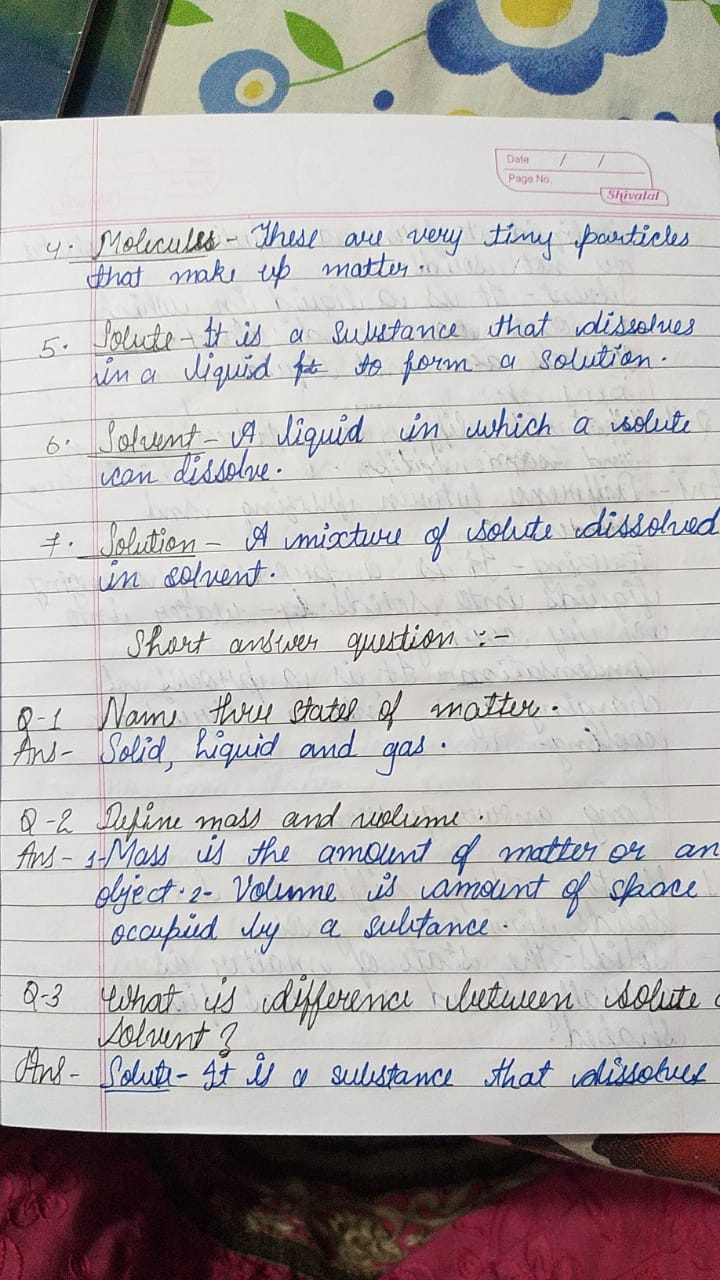 Date / /
Page No.
Shivalal
4. Molecules - These are very tiny particles
that make up matter.
5. Solute - It is a substance that dissolves
in a liquid to form a solution.
6. Solvent - A liquid in which a solute
can dissolve.
7. Solution - A mixture of solute dissolved
in solvent.
Short answer question :-
Q-1 Name three states of matter.
Ans- Solid, Liquid and gas.
Q-2 Define mass and volume.
Ans- 1-Mass is the amount of matter or an
object. 2- Volume is amount of space
occupied by a substance.
Q-3 What is difference between solute
Solvent?
Ans- Solute - It is a substance that dissolves